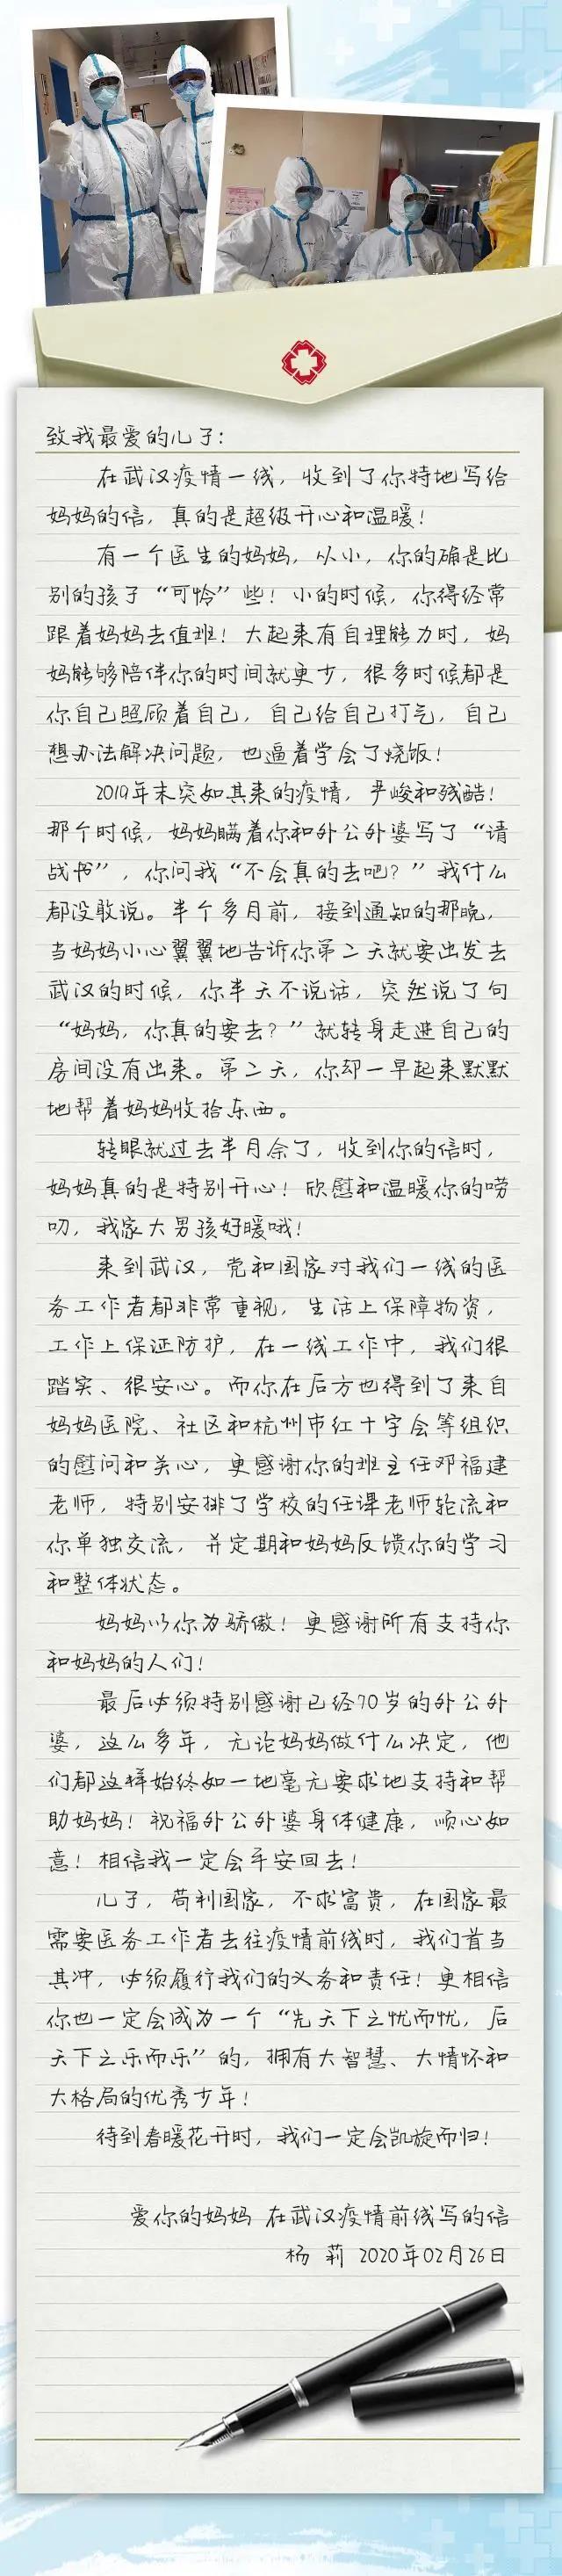 致我最爱的儿子：
在武汉疫情一线，收到了你特地写给
妈妈的信，真的是超级开心和温暖！
有一个医生的妈妈，从小，你的确是比
别的孩子“可怜”些！小的时候，你得经常
跟着妈妈去值班！大起来有自理能力时，妈
妈能够陪伴你的时间就更少，很多时候都是
你自己照顾着自己，自己给自己打气，自己
想办法解决问题，也逼着学会了烧饭！
2019年末突如其来的疫情，严峻和残酷！
那个时候，妈妈瞒着你和外公外婆写了“请
战书”，你问我“不会真的去吧？”我什么
都没敢说。半个多月前，接到通知的那晚，
当妈妈小心翼翼地告诉你第二天就要出发去
武汉的时候，你半天不说话，突然说了句
“妈妈，你真的要去？”就转身走进自己的
房间没有出来。第二天，你却一早起来默默
地帮着妈妈收拾东西。
转眼就过去半月余了，收到你的信时，
妈妈真的是特别开心！欣慰和温暖你的唠
叨，我家大男孩好暖哦！
来到武汉，党和国家对我们一线的医
务工作者都非常重视，生活上保障物资，
工作上保证防护，在一线工作中，我们很
踏实、很安心。而你在后方也得到了来自
妈妈医院、社区和杭州市红十字会等组织
的慰问和关心，更感谢你的班主任邓福建
老师，特别安排了学校的任课老师轮流和
你单独交流，并定期和妈妈反馈你的学习
和整体状态。
妈妈以你为骄傲！更感谢所有支持你
和妈妈的人们！
最后必须特别感谢已经70岁的外公外
婆，这么多年，无论妈妈做什么决定，他
们都这样始终如一地毫无要求地支持和帮
助妈妈！祝福外公外婆身体健康，顺心如
意！相信我一定会平安回去！
儿子，苟利国家，不求富贵，在国家最
需要医务工作者去往疫情前线时，我们首当
其冲，必须履行我们的义务和责任！更相信
你也一定会成为一个“先天下之忧而忧，后
天下之乐而乐”的，拥有大智慧、大情怀和
大格局的优秀少年！
待到春暖花开时，我们一定会凯旋而归！
爱你的妈妈 在武汉疫情前线写的信
杨 莉 2020年02月26日